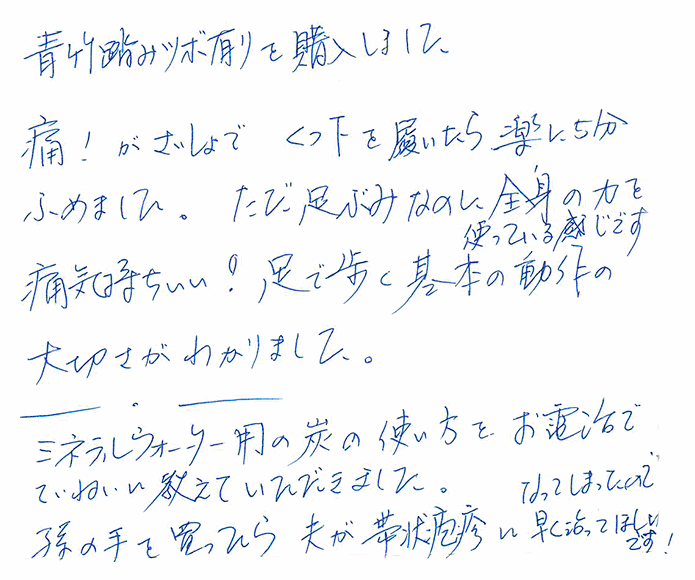 青竹踏みツボ有りを購入しました
痛！がさいしょで くつ下を履いたら楽に5分
ふめました。ただ足ぶみなのに全身の力を
使っている感じです
痛気持ちいい！足で歩く基本の動作の
大切さがわかりました。
ミネラルウォーター用の炭の使い方をお電話で
ていねいに教えていただきました。
孫の手を買ったら夫が帯状疱疹に
なってしまったので
早く治ってほしい
です！